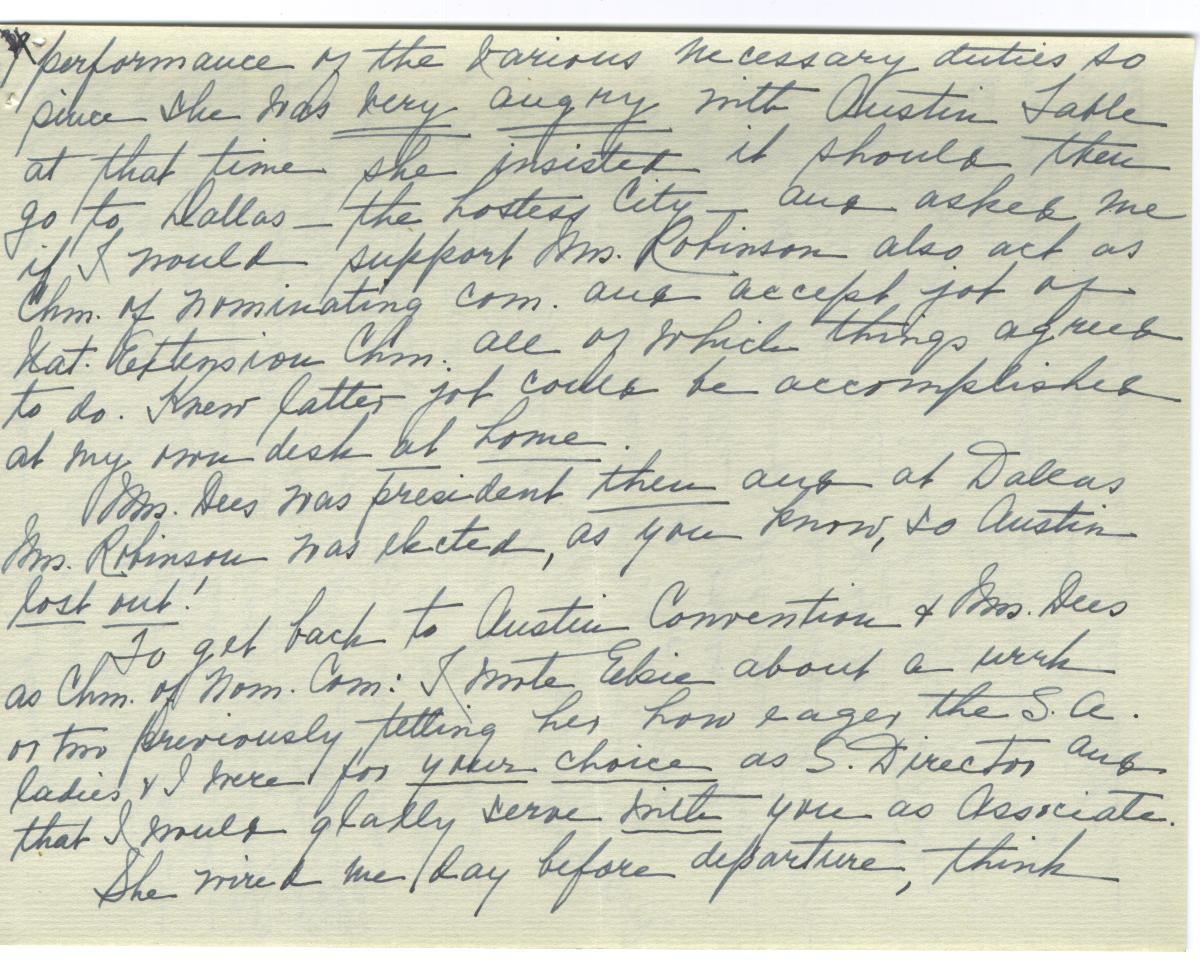 performance of the various necessary duties so
since she was very angry with Austin Table
at that time she insisted it should then
go to Dallas — the hostess City — and asked me
if I would support Mrs. Robinson also act as
Chm. of nominating com. and accept job of
Nat. Extension Chm. all of which things agreed
to do. Knew latter job could be accomplished
at my own desk at home.
Mrs. Dees was president then and at Dallas
Mrs. Robinson was elected, as you know, so Austin
lost out!
To get back to Austin Convention & Mrs. Dees
as Chm. of Nom. Com: I wrote Elsie about a week
or two previously telling her how eager the S.A.
ladies & I were for your choice as S. Director and
that I would gladly serve with you as Associate.
She wired me day before departure, think